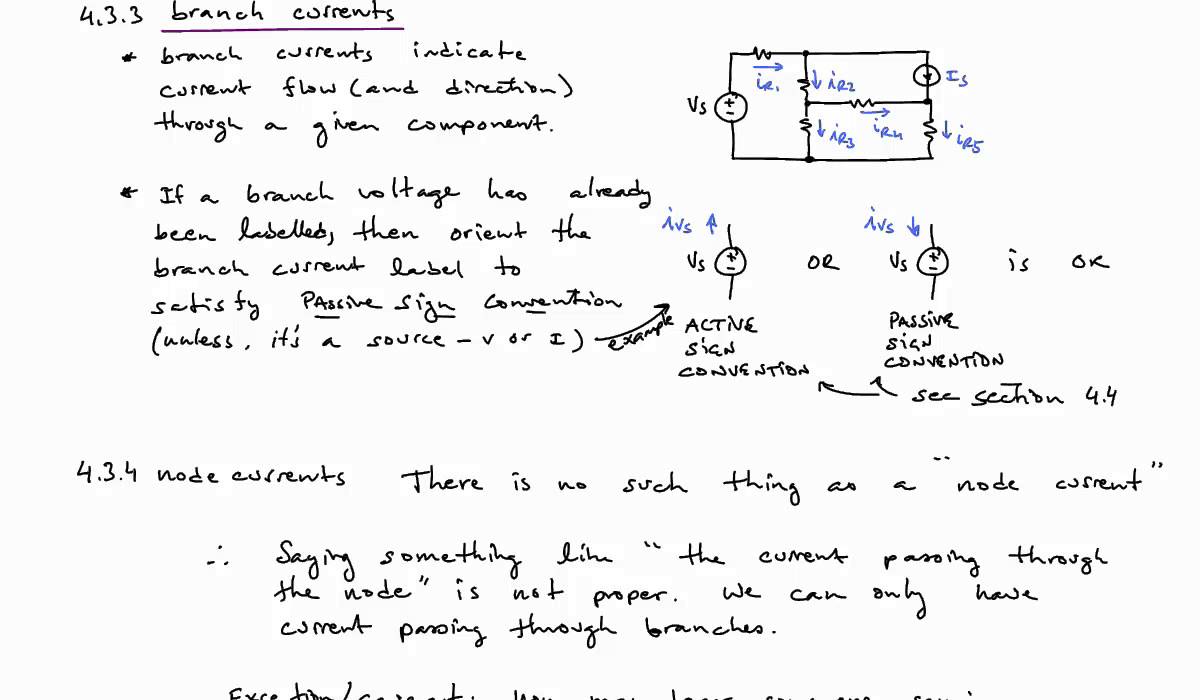 4.3.3 branch currents
* branch currents indicate
current flow (and direction)
through a given component.
Vs
iR1
iR2
Is
iR3
iR4
iR5
* If a branch voltage has already
been labelled, then orient the
branch current label to
satisfy PAssive sign convention
(unless, it's a source - V or I)
example
ivs
Vs
ACTIVE
SIGN
CONVENTION
OR
ivs
Vs
PASSIVE
SIGN
CONVENTION
is OK
see section 4.4
4.3.4 node currents There is no such thing as a "node current"
∴ Saying something like "the current passing through
the node" is not proper. We can only have
current passing through branches.